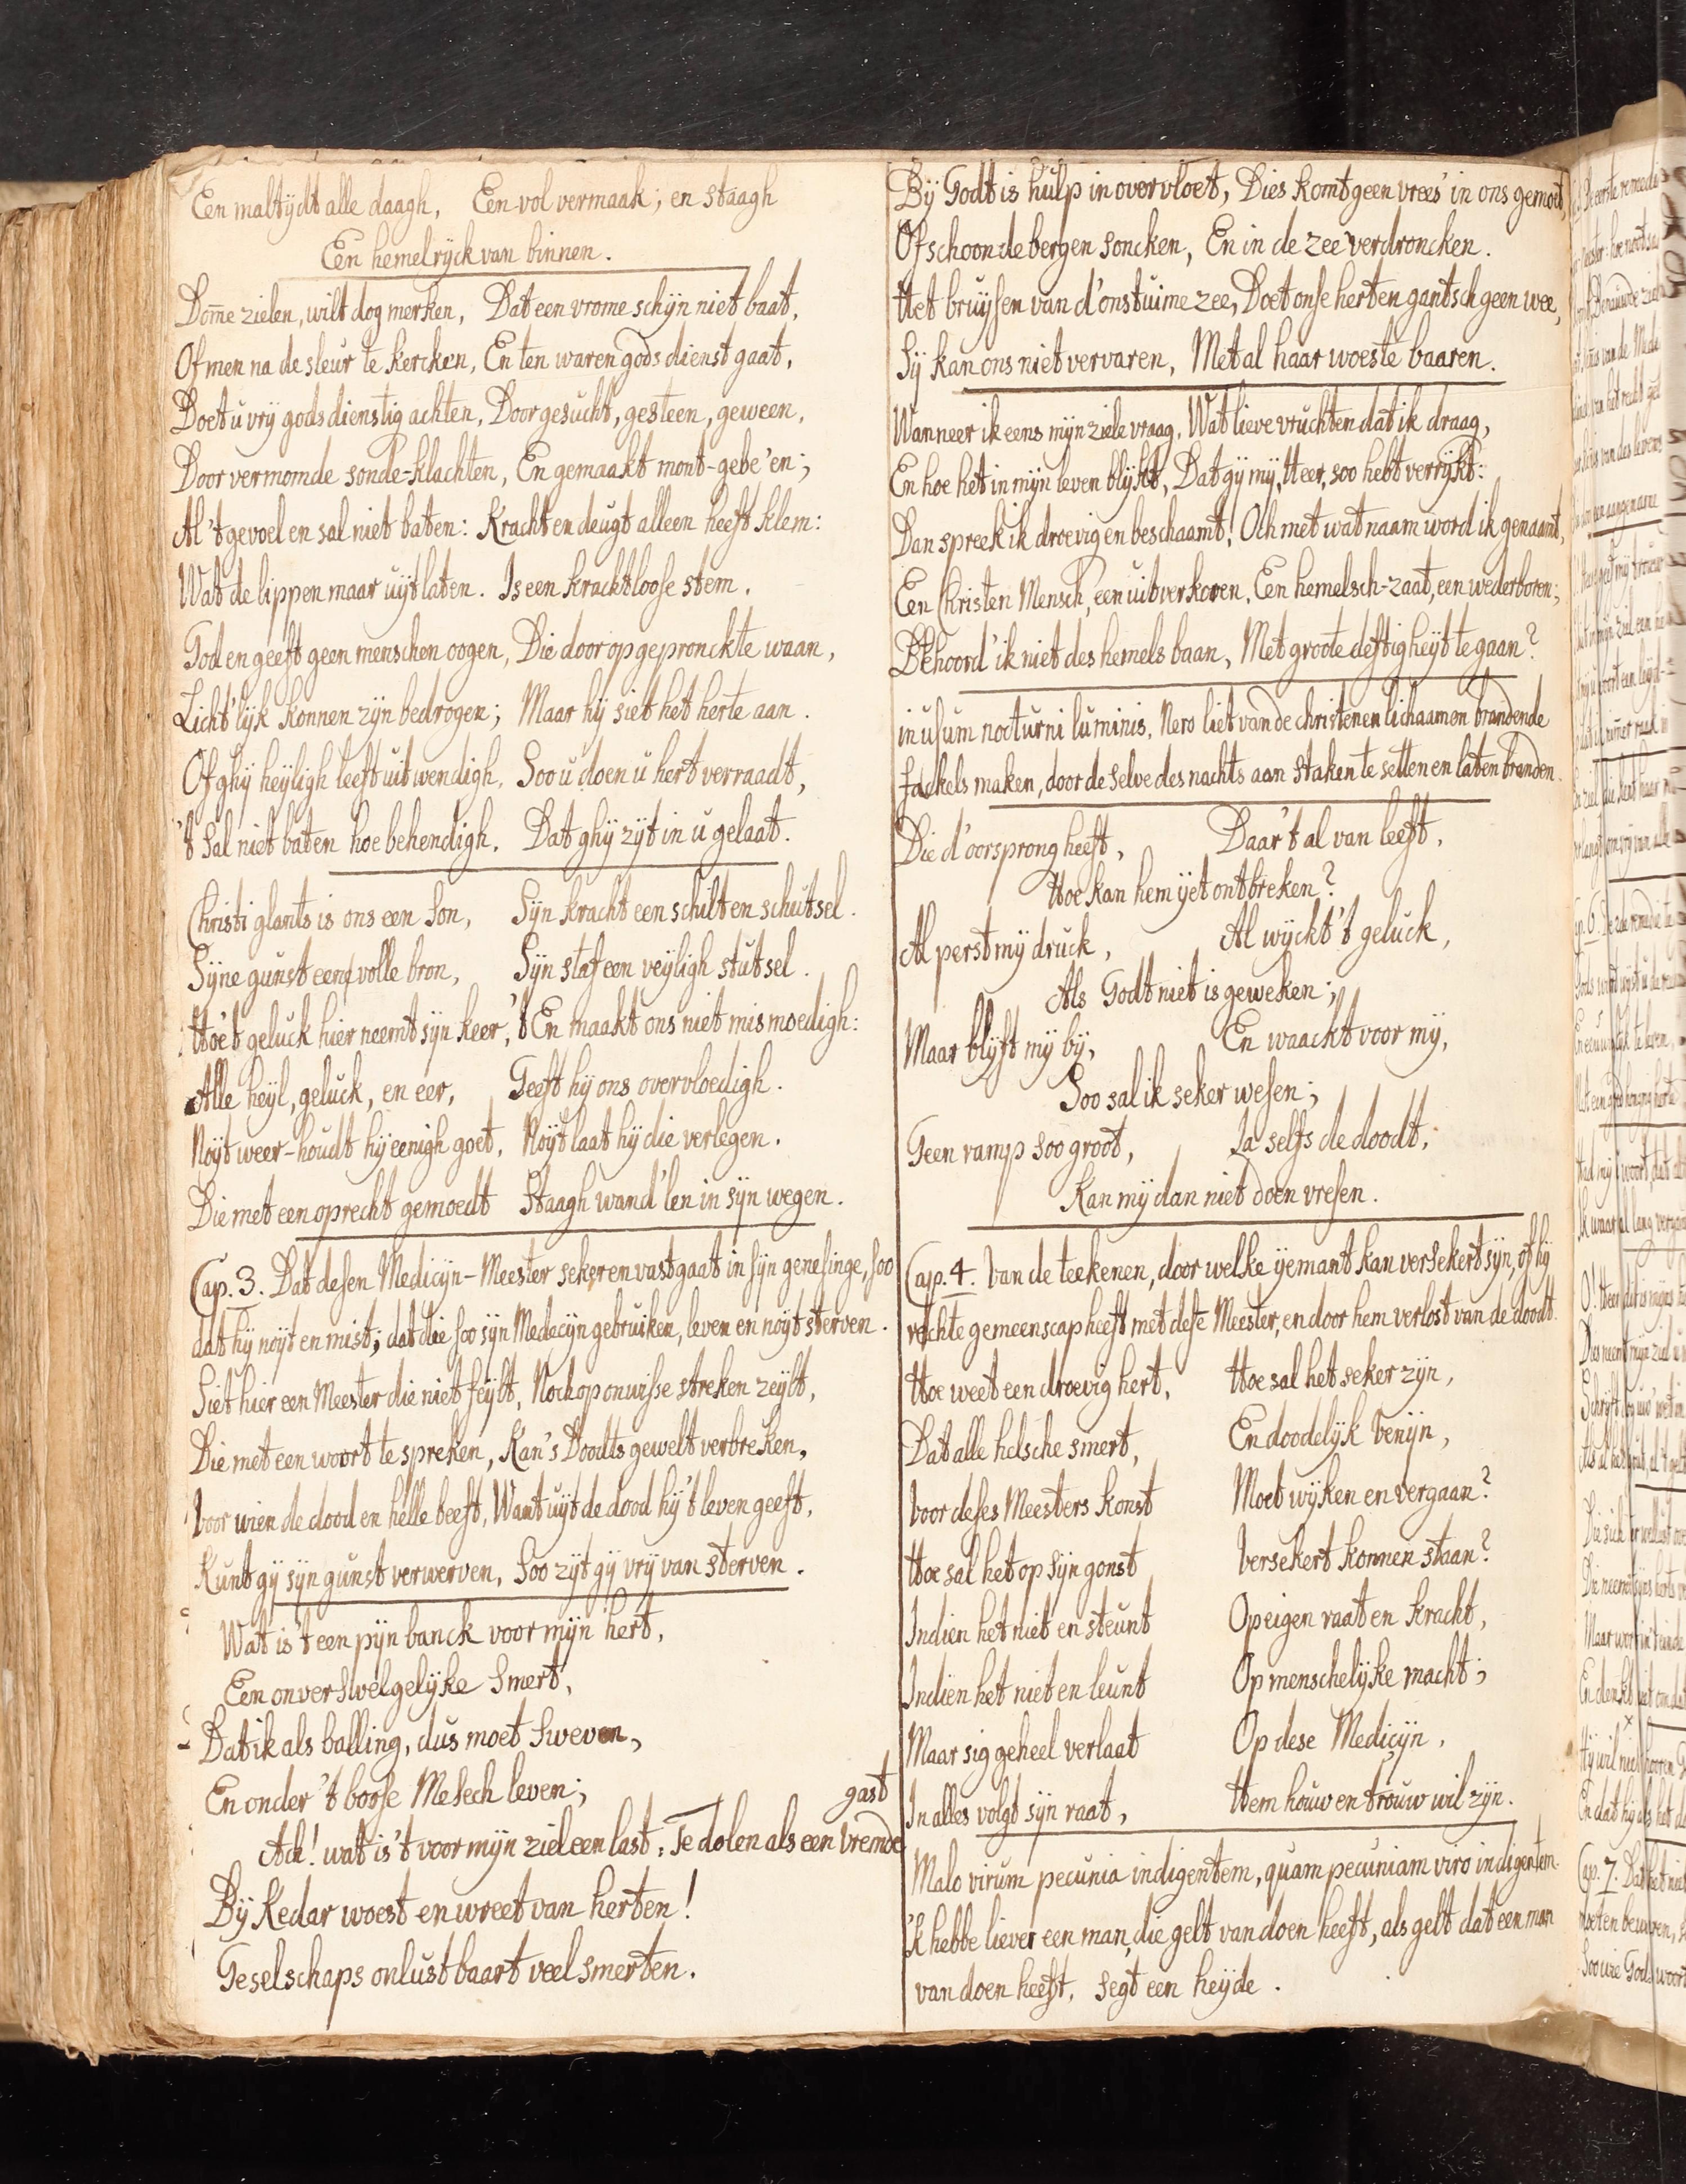 Een maltydt alle daagh, Een vol vermaak; en staagh
Een hemelryck van binnen.
Dom̄e zielen, wilt dog merken, Dat een vrome schyn niet baat,
Of men na de sleur te kercken, En ten waren gods dienst gaat,
Doet u vry gods dienstig achten, Door gesucht, gesteen, geween,
Door vermomde sonde-klachten, En gemaakt mont-gebe'en;
Al 't gevoel en sal niet baten: Kracht en deugt alleen heeft klem:
Wat de lippen maar uyt laten. Is een kracktloose stem.
God en geeft geen menschen oogen, Die door opgepronckte waan,
Licht'lyk konnen zyn bedrogen; Maar hy siet het herte aan.
Of ghy heyligh leeft uitwendigh, Soo u doen u hert verraadt,
't Sal niet baten hoe behendigh, Dat ghy zyt in u gelaat.
Christi glants is ons een son, Syn kracht een schilt en schutsel.
Syne gunst een volle bron, Syn staf een veyligh stutsel.
Hoe't geluck hier neemt syn keer, 't En maakt ons niet mismoedigh:
Alle heyl, geluck, en eer, Geeft hy ons overvloedigh.
Noyt weer-houdt hy eenigh goet, Noyt laat hy die verlegen.
Die met een oprecht gemoedt Staagh wand'len in syn wegen.
Cap. 3. Dat desen Medicyn-Meester seker en vast gaat in syn genesinge, soo
dat hy noyt en mist; dat die soo syn Medecyn gebruiken, leven en noyt sterven.
Siet hier een Meester die niet feylt, Noch op onwisse streken zeylt,
Die met een woort te spreken, Kan 's Doodts gewelt verbreken,
Voor wien de dood en helle beeft, Want uyt de dood hy 't leven geeft,
Kunt gy syn gunst verwerven, Soo zyt gy vry van sterven.
Wat is 't een pyn banck voor myn hert,
Een onverswelgelyke smert,
Dat ik als balling, dus moet sweven,
En onder 't boose Mesech leven;
Ach! wat is 't voor myn ziel een last, Te dolen als een vremde gast
By Kedar woest en wreet van herten!
Geselschaps onlust baart veel smerten.
By Godt is hulp in overvloet, Dies komt geen vrees' in ons gemoet,
Of schoon de bergen soncken, En in de zee verdroncken.
Het bruysen van d'onstuime zee, Doet onse herten gantsch geen wee,
Sy kan ons niet vervaren, Met al haar woeste baaren.
Wanneer ik eens myn ziele vraag, Wat lieve vruchten dat ik draag,
En hoe het in myn leven blykt, Dat gy my, Heer, soo hebt verrykt:
Dan spreek ik droevig en beschaamt! Och met wat naam word ik genaamt,
Een Christen Mensch, een uitverkoren, Een hemelsch-zaat, een wederboren;
Behoord' ik niet des hemels baan, Met groote deftigheyt te gaan?
in usum nocturni luminis, Nero liet van de christenen lichaamen brandende
fackels maken, door de selve des nachts aan staken te setten en laten branden.
Die d'oorsprong heeft, Daar 't al van leeft,
Hoe kan hem yet ontbreken?
Al perst my druck, Al wyckt 't geluck,
Als Godt niet is geweken;
Maar blyft my by, En waacht voor my,
Soo sal ik seker wesen;
Geen ramp soo groot, Ja selfs de doodt,
Kan my dan niet doen vresen.
Cap. 4. Van de teekenen, door welke yemant kan versekert syn, of hy
rechte gemeenscap heeft met dese Meester, en door hem verlost van de doodt.
Hoe weet een droevig hert, Hoe sal het seker zyn,
Dat alle helsche smert, En doodelyk venyn,
Voor deses Meesters konst Moet wyken en vergaan?
Hoe sal het op syn gonst Versekert konnen staan?
Indien het niet en steunt Op eigen raat en kracht,
Indien het niet en leunt Op menschelyke macht;
Maar sig geheel verlaat Op dese Medicyn,
In alles volgt syn raat, Hem houw en trouw wil zyn.
Malo virum pecunia indigentem, quam pecuniam viro indigentem.
'k hebbe liever een man, die gelt van doen heeft, als gelt dat een man
van doen heeft, segt een heyde.